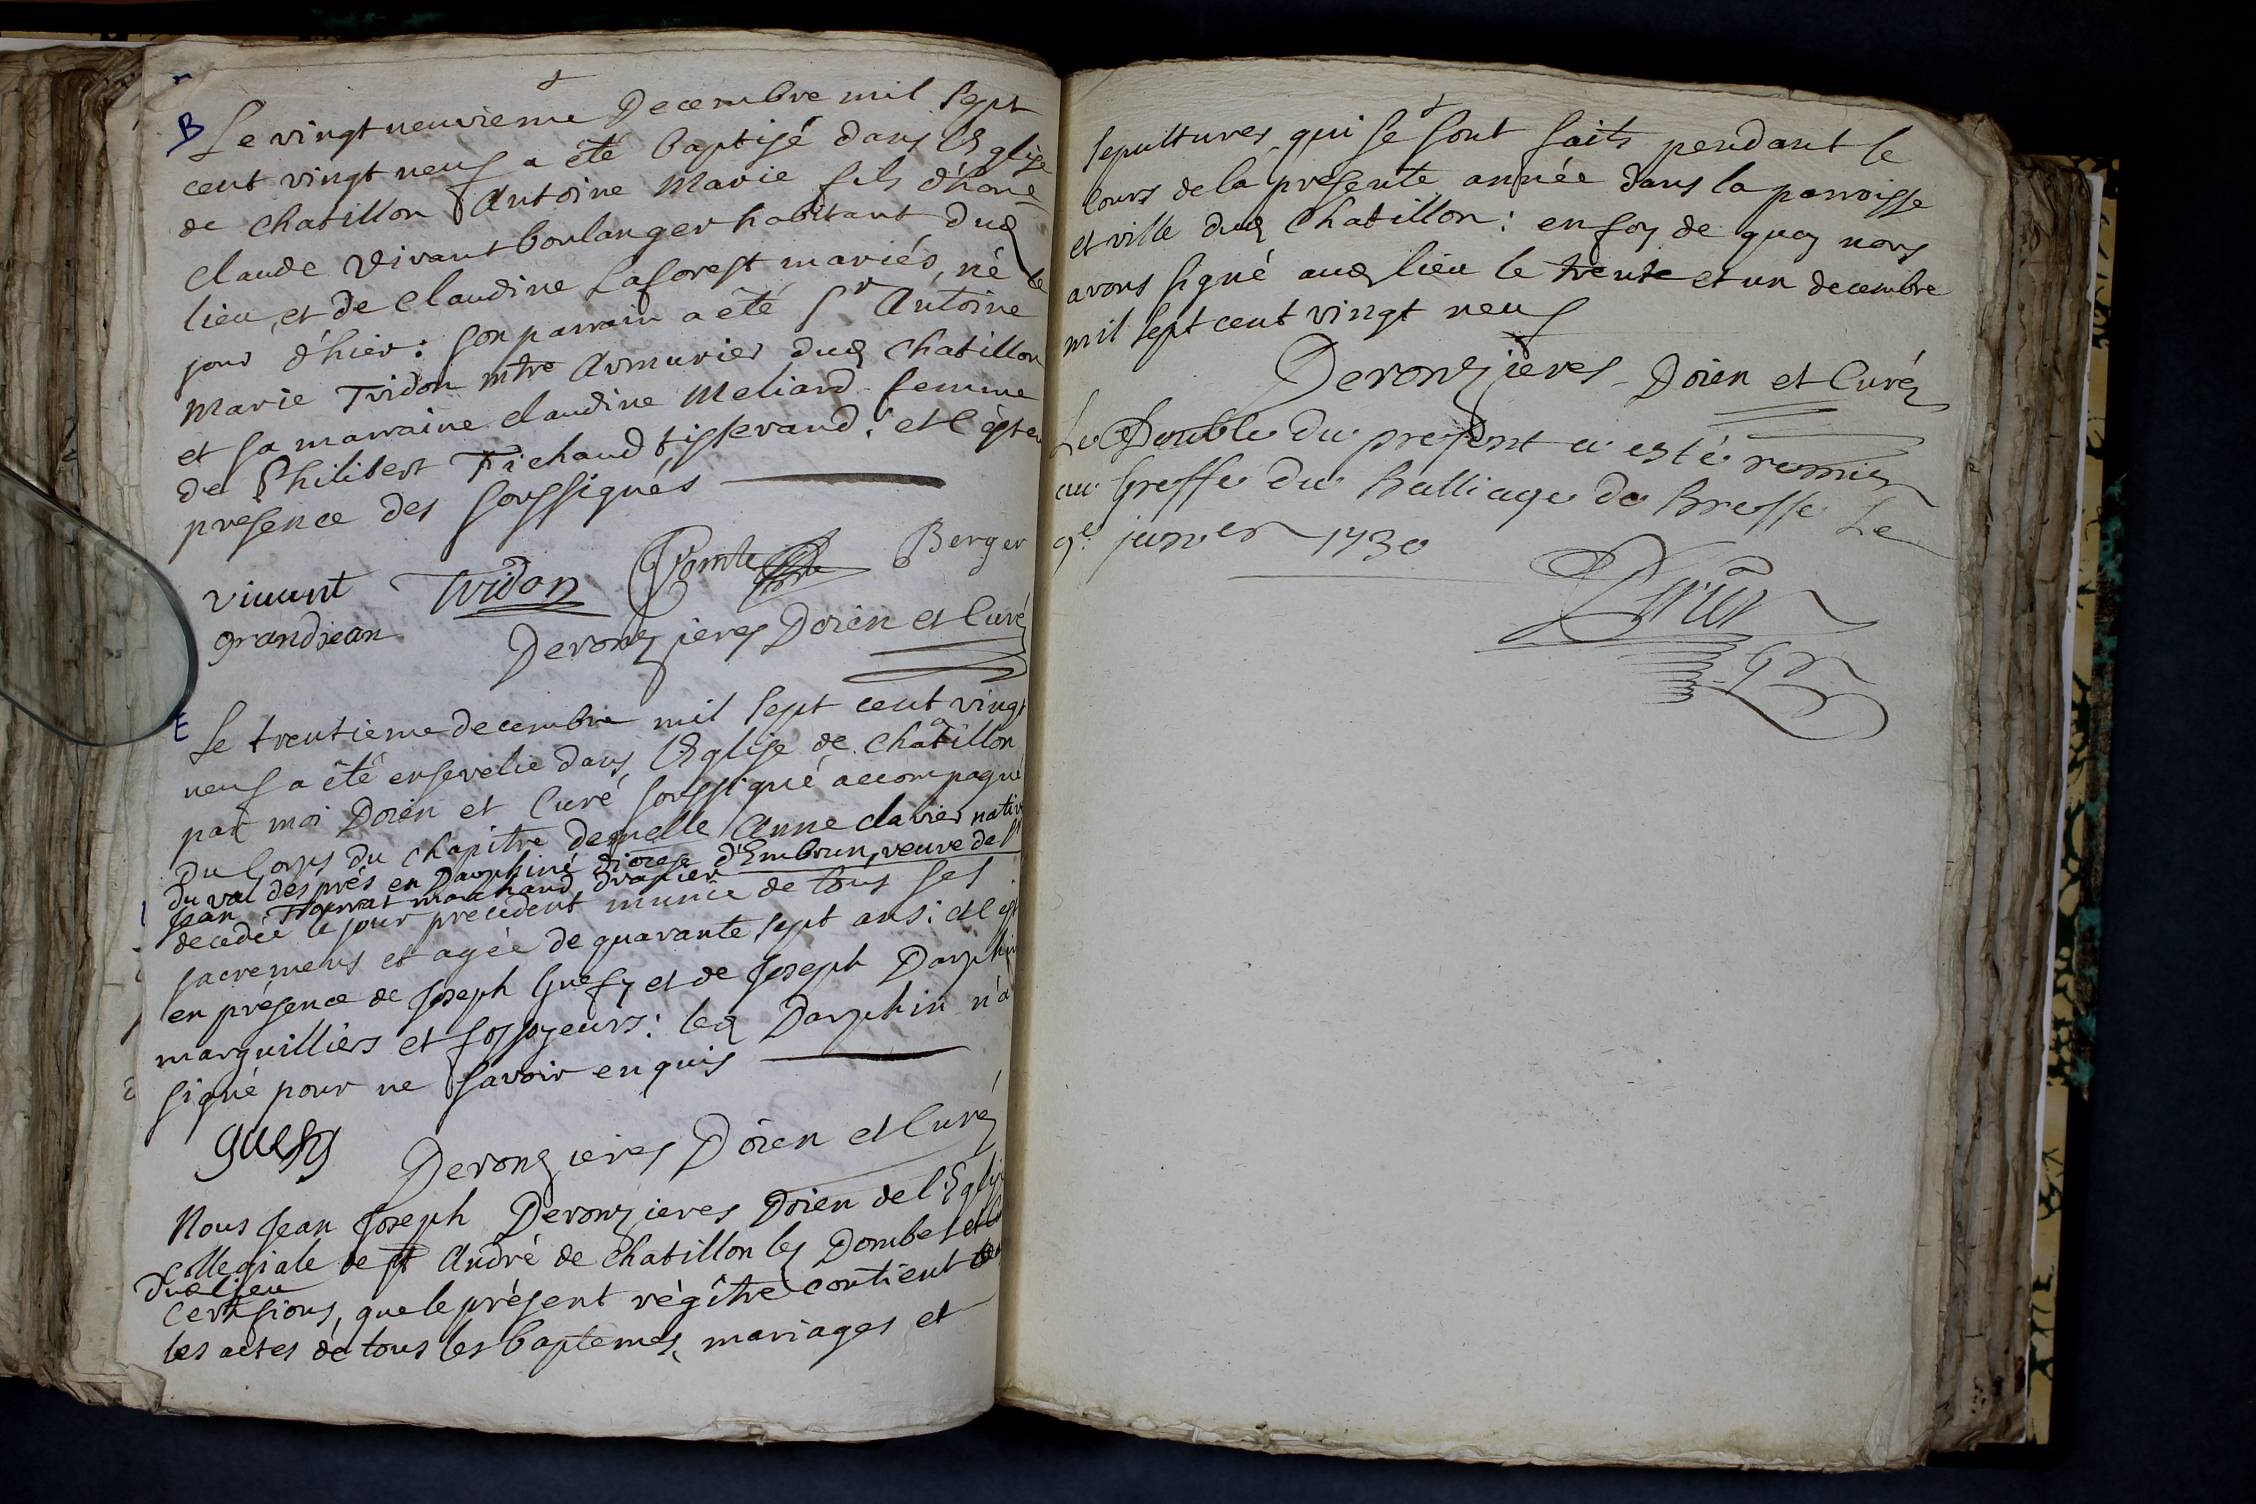 B
Le vingtneuvieme Decembre mil sept
cent vingt neuf a été baptisé dans l'Eglise
de Chatillon Antoine Marie fils d'hone
Claude Vivant boulanger habitant dud
lieu, et de Claudine Laforest mariés, né le
jour d'hier : son parrain a été Sr Antoine
Marie Tridon mtre Armurier dud Chatillon
et sa marraine Claudine Meliard femme
de Philibert Trichaud tisserand : et c'est en
presence des soussignés
vivant Tridon Comte Berger
grandjean Deronzieres Doïen et Curé
E
Le trentieme decembre mil sept cent vingt
neuf a été ensevelie dans l'Eglise de Chatillon
par moi Doïen et Curé soussigné accompagné
du Corps du Chapitre demelle Anne clavier native
du val des prés en Dauphiné diocese d'Embrun, veuve de Sr
Jean marchand drapier
decedée le jour precedent munie de tous ses
sacremens et agée de quarante sept ans : et c'est
en présence de Joseph Guesy et de Joseph Dauphin
marguilliers et fossoyeurs : led Dauphin n'a
signé pour ne savoir enquis
guesy Deronzieres Doïen et Curé
Nous Jean Joseph Deronzieres Doïen de l'Eglise
collegiale de st André de Chatillon les Dombes et Curé
dud lieu
certifions, que le présent régitre contient
les actes de tous les baptemes, mariages et
sepultures qui se sont faits pendant le
cours de la presente année dans la parroisse
et ville dud Chatillon : en foy de quoy nous
avons signé aud lieu le trente et un decembre
mil sept cent vingt neuf
Deronzieres Doïen et Curé
Le Double du present a esté remis
au Greffe du Balliage de Bresse Le
9e janvier 1730